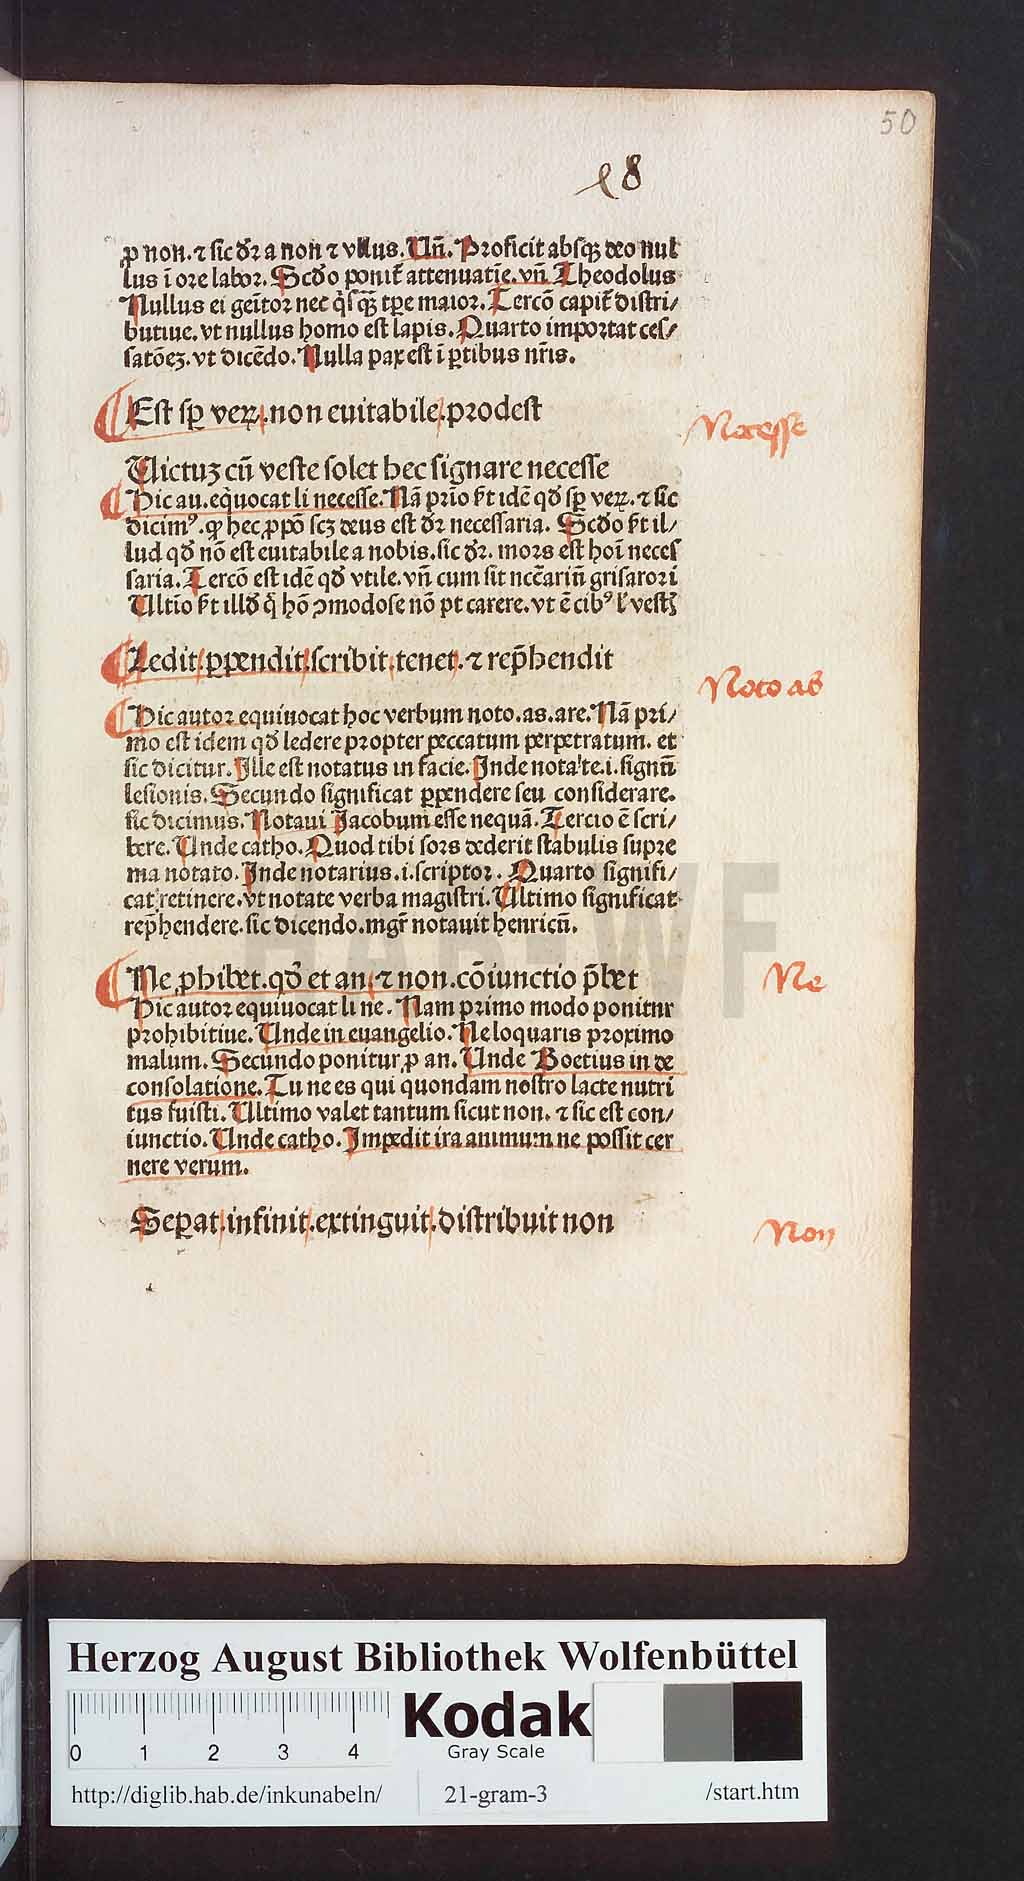 50
e8
ꝓ non. ⁊ sic dr̄ a non ⁊ vllus. Un̄. Proficit absqꝫ deo nul
lus ī ore labor. Scdo ponit̄ attenuatīe. vn̄ Theodolus
Nullus ei geītor nec q̄sq̄ꝫ tp̄e maior. Tercō capit̄ distri/
butiue. vt nullus homo est lapis. Quarto importat ces/
satōeꝫ. vt dicēdo. Nulla pax est ī ꝑtibus nr̄is.
Est sꝑ veꝝ. non euitabile. prodest
Uictuꝫ cū veste solet hec signare necesse
Dic au. eq̇uocat li necesse. Nā prīo ẜt idē qd̓ sꝑ veꝝ. ⁊ sic
dicimꝰ. ꝙ hec ꝓpō scꝫ deus est dr̄ necessaria. Scdo ẜt il/
lud qd̓ nō est euitabile a nobis. sic dr̄. mors est hoī neces
saria. Tercō est idē qd̓ vtile. vn̄ cum sit ncc̄arin̄ grisarori
Ultīo ẜt illd̓ q̇ hō ↄmodose nō pt carere. vt ē cibꝰ l̓ vestꝫ
Ledit. ꝑpendit. scribit. tenet. ⁊ rep̄hendit
Dic autor equiuocat hoc verbum noto. as. are. Nā pri/
mo est idem qd̓ ledere propter peccatum perpetratum. et
sic dicitur. Ille est notatus in facie. Inde nota te. i. signū
lesionis. Secundo significat ꝑpendere seu considerare.
sic dicimus. Notaui Jacobum esse nequā. Tercio ē scri/
bere. Unde catho. Quod tibi sors dederit stabulis supre
ma notato. Inde notarius. i. scriptor. Quarto signifi/
cat retinere. vt notate verba magistri. Ultimo significat
rep̄hendere. sic dicendo. mgr̄ notauit henricū.
Ne ꝓhibet. qd̓ et an. ⁊ non. cōiunctio p̄bet
Dic autor equiuocat li ne. Nam primo modo ponitur
prohibitiue. Unde in euangelio. Ne loquaris proximo
malum. Secundo ponitur ꝓ an. Unde Boetius in de
consolatione. Tu ne es qui quondam nostro lacte nutri
tus fuisti. Ultimo valet tantum sicut non. ⁊ sic est con/
iunctio. Unde catho. Impedit ira animum ne possit cer
nere verum.
Seꝑat. infinit. extinguit. distribuit non
Necesse
Noto as
Ne
Non
HAB-WF
Herzog August Bibliothek Wolfenbüttel
0 1 2 3 4
Kodak
Gray Scale
http://diglib.hab.de/inkunabeln/ 21-gram-3 /start.htm